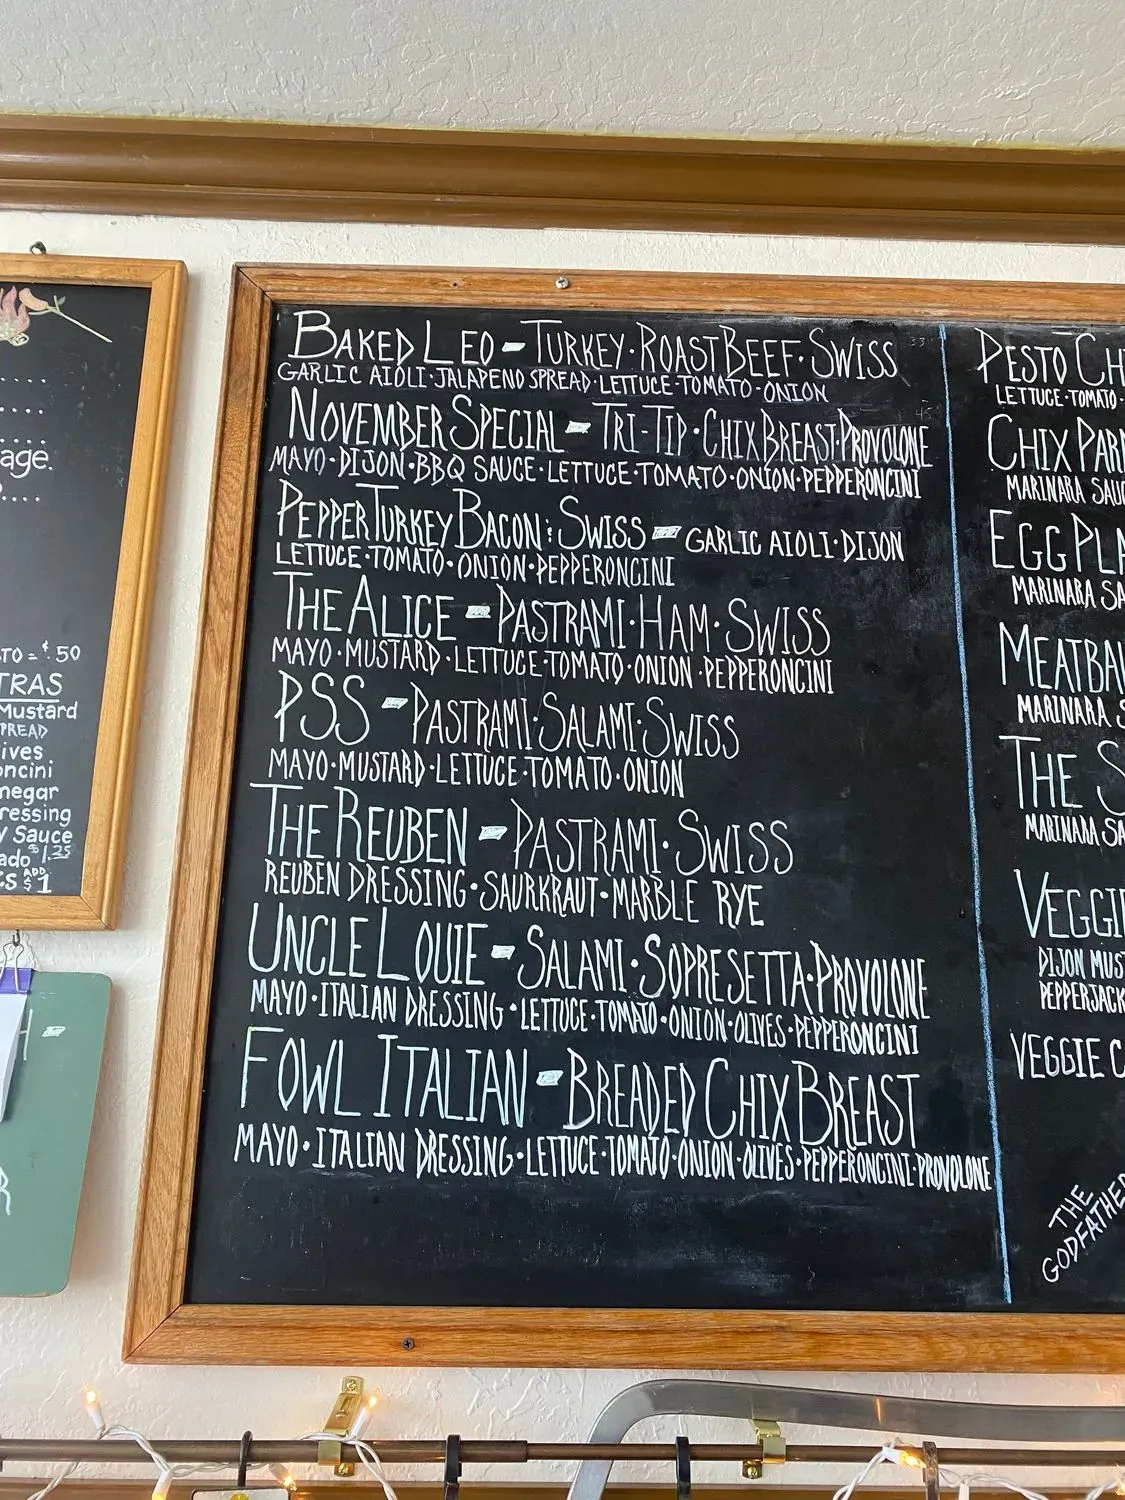 age.
TO = $.50
TRAS
Mustard
PREAD
ives
oncini
negar
ressing
y Sauce
ado $1.25
CS ADD $1
BAKED LEO - TURKEY · ROAST BEEF · SWISS
GARLIC AIOLI · JALAPENO SPREAD · LETTUCE · TOMATO · ONION
NOVEMBER SPECIAL - TRI-TIP · CHIX BREAST · PROVOLONE
MAYO · DIJON · BBQ SAUCE · LETTUCE · TOMATO · ONION · PEPPERONCINI
PEPPER TURKEY BACON : SWISS - GARLIC AIOLI · DIJON
LETTUCE · TOMATO · ONION · PEPPERONCINI
THE ALICE - PASTRAMI · HAM · SWISS
MAYO · MUSTARD · LETTUCE · TOMATO · ONION · PEPPERONCINI
PSS - PASTRAMI · SALAMI · SWISS
MAYO · MUSTARD · LETTUCE · TOMATO · ONION
THE REUBEN - PASTRAMI · SWISS
REUBEN DRESSING · SAURKRAUT · MARBLE RYE
UNCLE LOUIE - SALAMI · SOPRESETTA · PROVOLONE
MAYO · ITALIAN DRESSING · LETTUCE · TOMATO · ONION · OLIVES · PEPPERONCINI
FOWL ITALIAN - BREADED CHIX BREAST
MAYO · ITALIAN DRESSING · LETTUCE · TOMATO · ONION · OLIVES · PEPPERONCINI · PROVOLONE
PESTO CH
LETTUCE · TOMATO ·
CHIX PAR
MARINARA SAUC
EGG PLA
MARINARA SA
MEATBA
MARINARA S
THE S
MARINARA SA
VEGGIE
DIJON MUS
PEPPERJACK
VEGGIE C
THE
GODFATHER